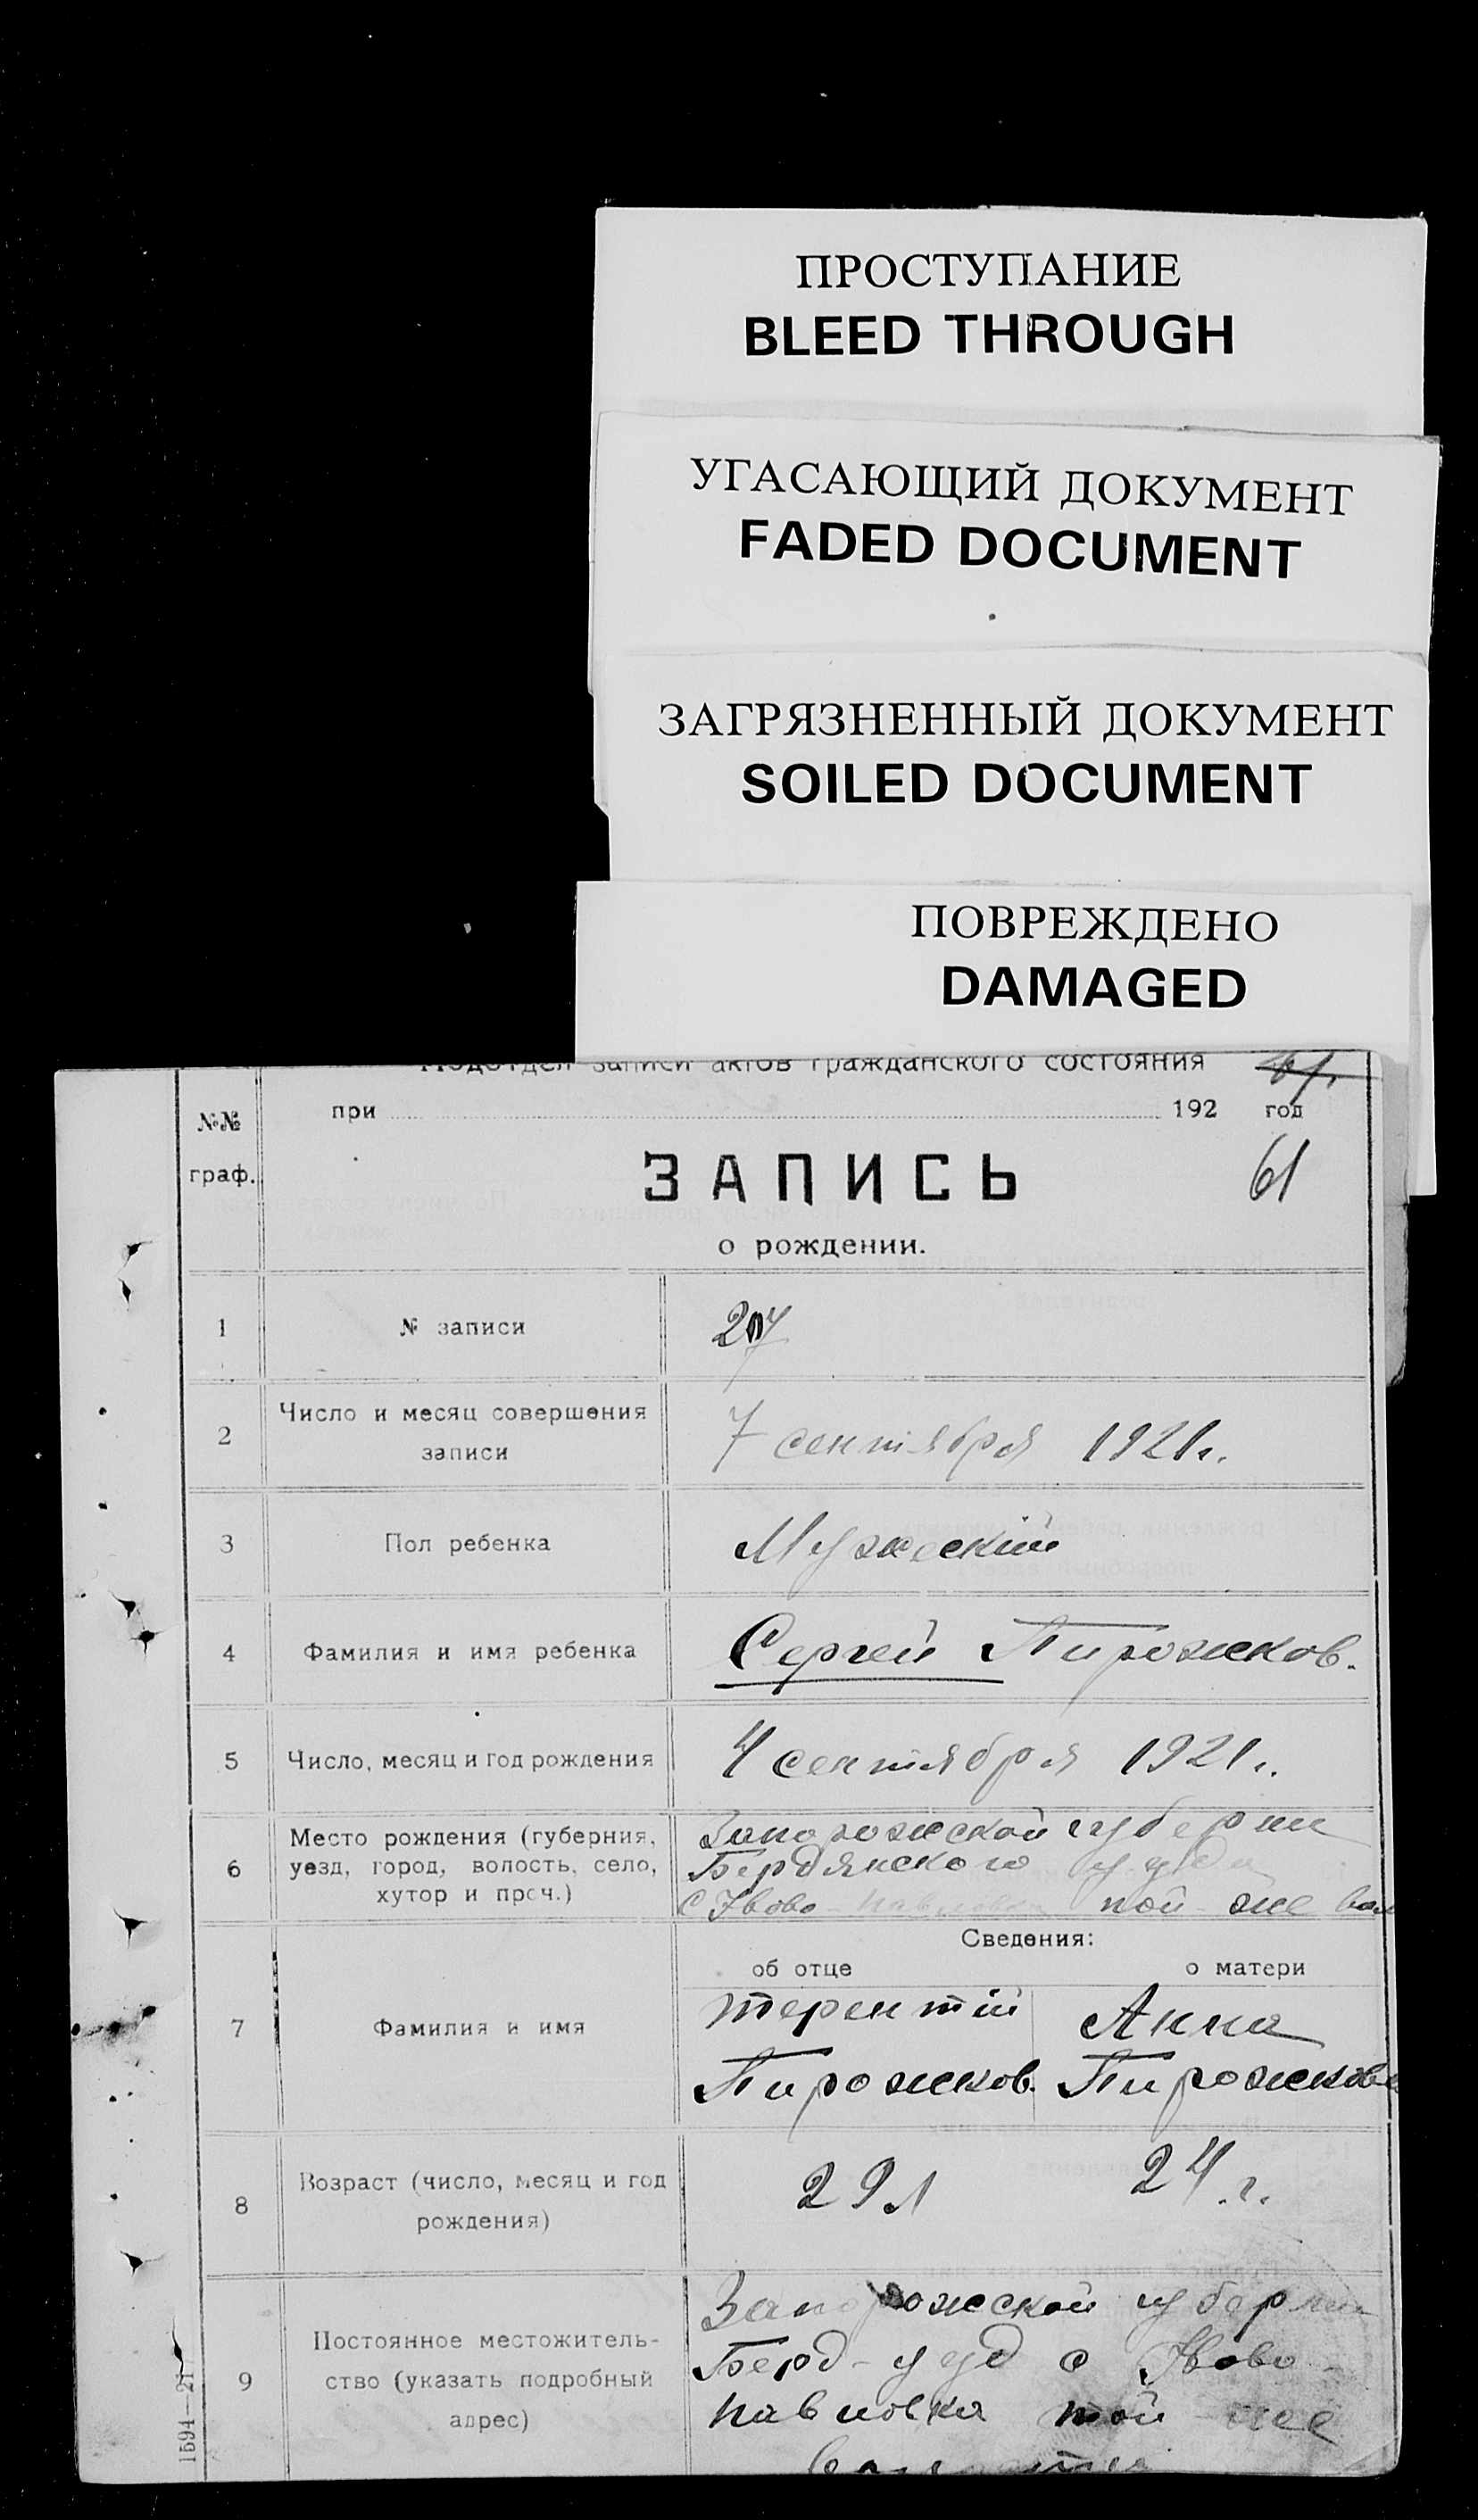 ПРОСТУПАНИЕ
BLEED THROUGH
УГАСАЮЩИЙ ДОКУМЕНТ
FADED DOCUMENT
ЗАГРЯЗНЕННЫЙ ДОКУМЕНТ
SOILED DOCUMENT
ПОВРЕЖДЕНО
DAMAGED
Подотдел записи актов гражданского состояния
№№ граф.
при 192 год
ЗАПИСЬ
61
о рождении.
1 № записи
2 Число и месяц совершения записи 7 сентября 1921 г.
3 Пол ребенка Мужескій
4 Фамилия и имя ребенка Сергей Пирожков.
5 Число, месяц и год рождения 4 сентября 1921 г.
6 Место рождения (губерния,
уезд, город, волость, село,
хутор и проч.)
Запорожской губернии
Бердянского уезда
с Ново-павловки той-же вол
Сведения:
об отце о матери
7 Фамилия и имя
Терентій Анна
Пирожков. Пирожкова
8 Возраст (число, месяц и год
рождения)
29 л 24 г.
9 Постоянное местожитель-
ство (указать подробный
адрес)
Запорожской губернии
Берд-уезд с Ново-
павловка той-же
волости
1594—21